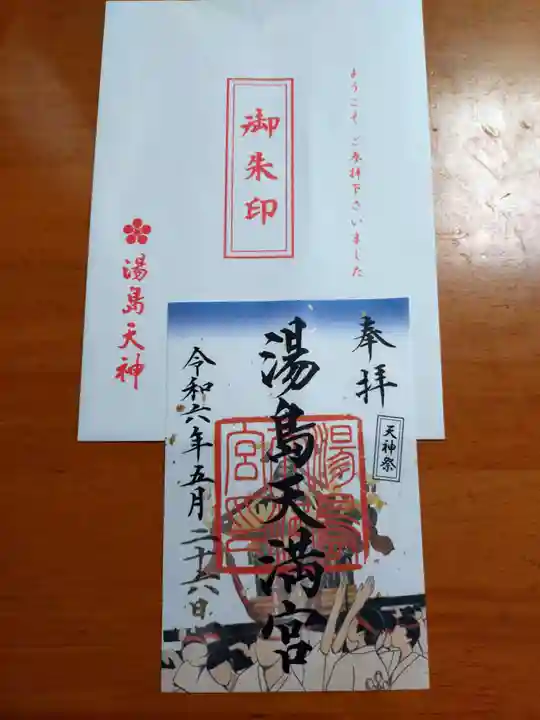 ようこそ ご参拝下さいました
御朱印
湯島天神
奉拝
天神祭
湯島天満宮
令和六年五月二十六日